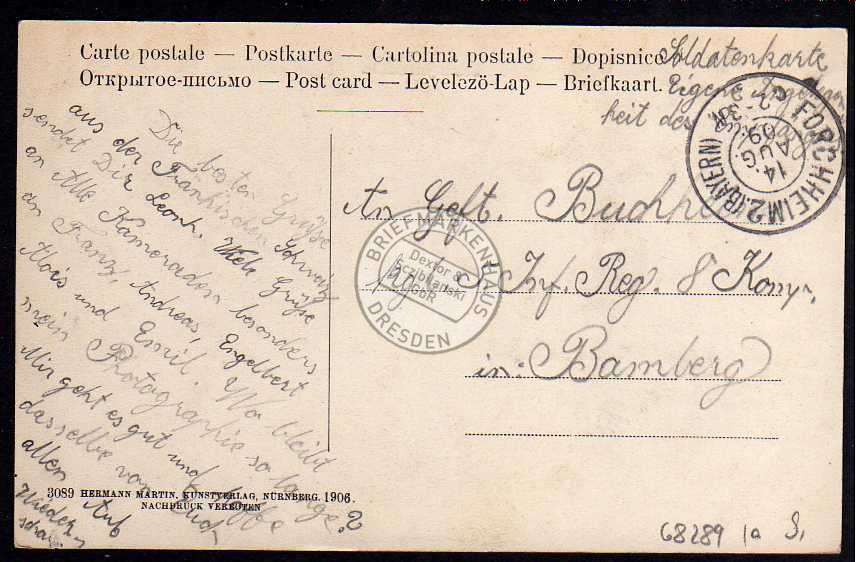 Carte postale — Postkarte — Cartolina postale — Dopisnice
Открытое-письмо — Post card — Levelezö-Lap — Briefkaart.
Soldatenkarte
Eigene
heit des
FORCHHEIM 2. (BAYERN)
14
AUG.
09
Die besten Grüße
aus der Fränkischen Schweiz
sendet Dir Leonh. Viele Grüße
an Alle Kameraden besonders
an Franz, Andreas, Engelbert
Alois und Emil. Wo bleibt
mein Photographie so lange?
Mir geht es gut und hoffe
dasselbe von Euch
allen Auf
Wieder-
An Geft.
5. Inf. Reg. 8 Komp.
in Bamberg
BRIEFMARKENHAUS
Dexler &
Sczibilanski
GbR
DRESDEN
3089 HERMANN MARTIN, KUNSTVERLAG, NÜRNBERG. 1906.
NACHDRUCK VERBOTEN
68289 1a